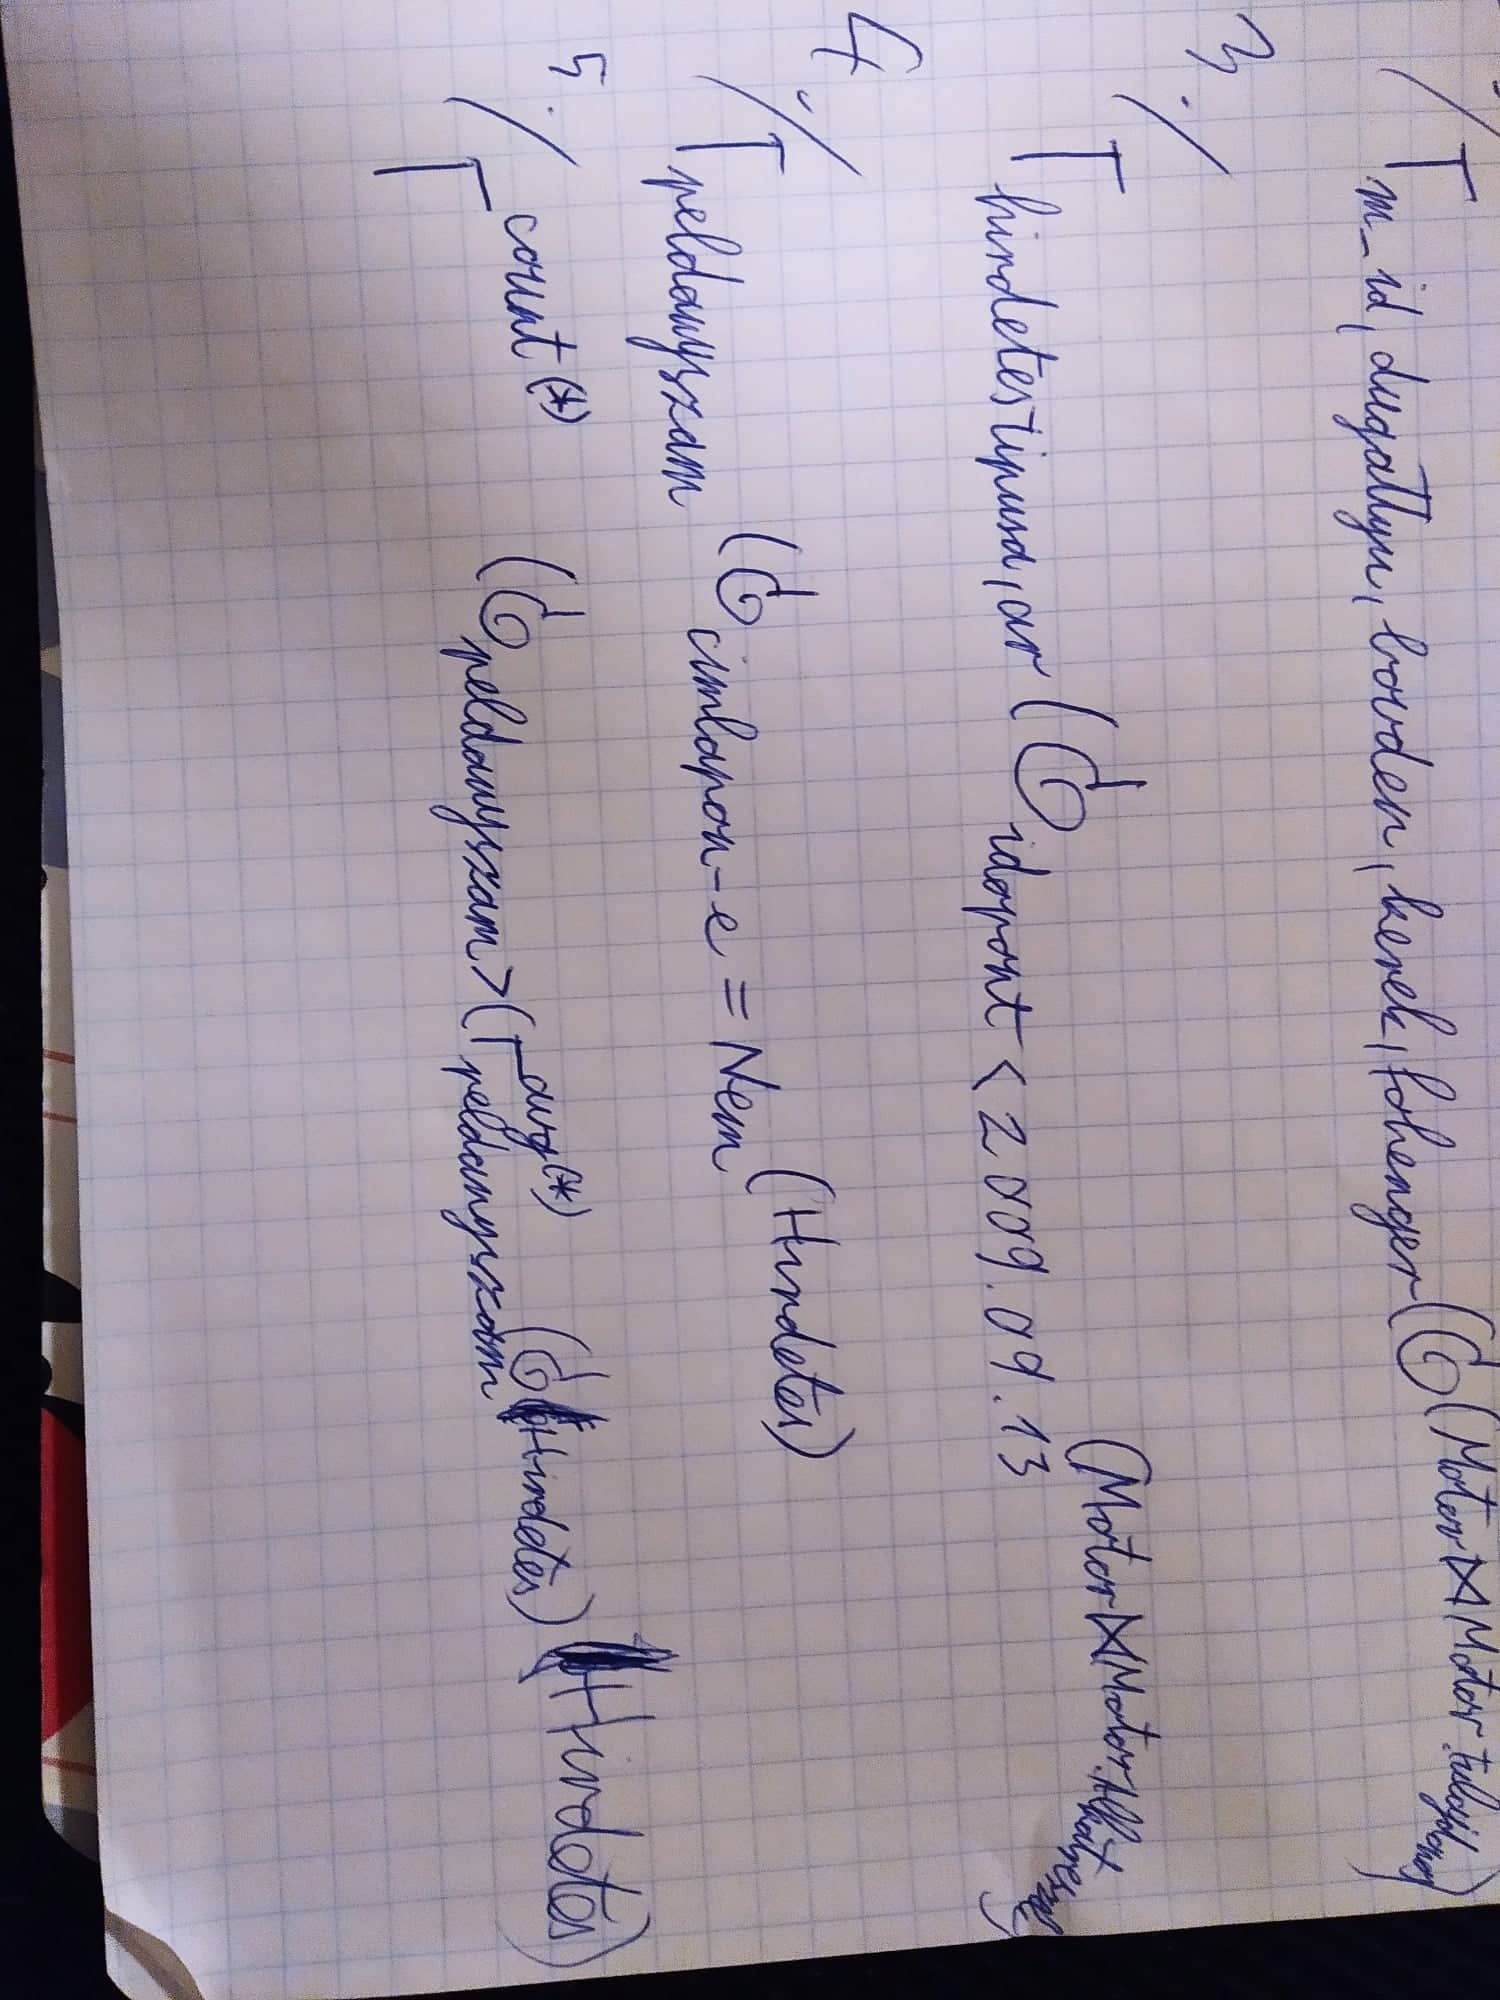 T m_id, dugattyu, bowden, kerek, fohenger (σ (Motor⋈Motor.tulajdonos)
3./
T hirdetestipusa, ar (σ idopont < 2009.09.13 (Motor⋈Motor.Alkatresze)
4./
T peldanyszam (σ cimlapon-e = Nem (Hirdetes)
5./
Γ count(*) (σ peldanyszam > (Γ avg(*) peldanyszam (σ (Hirdetes) (Hirdetes)